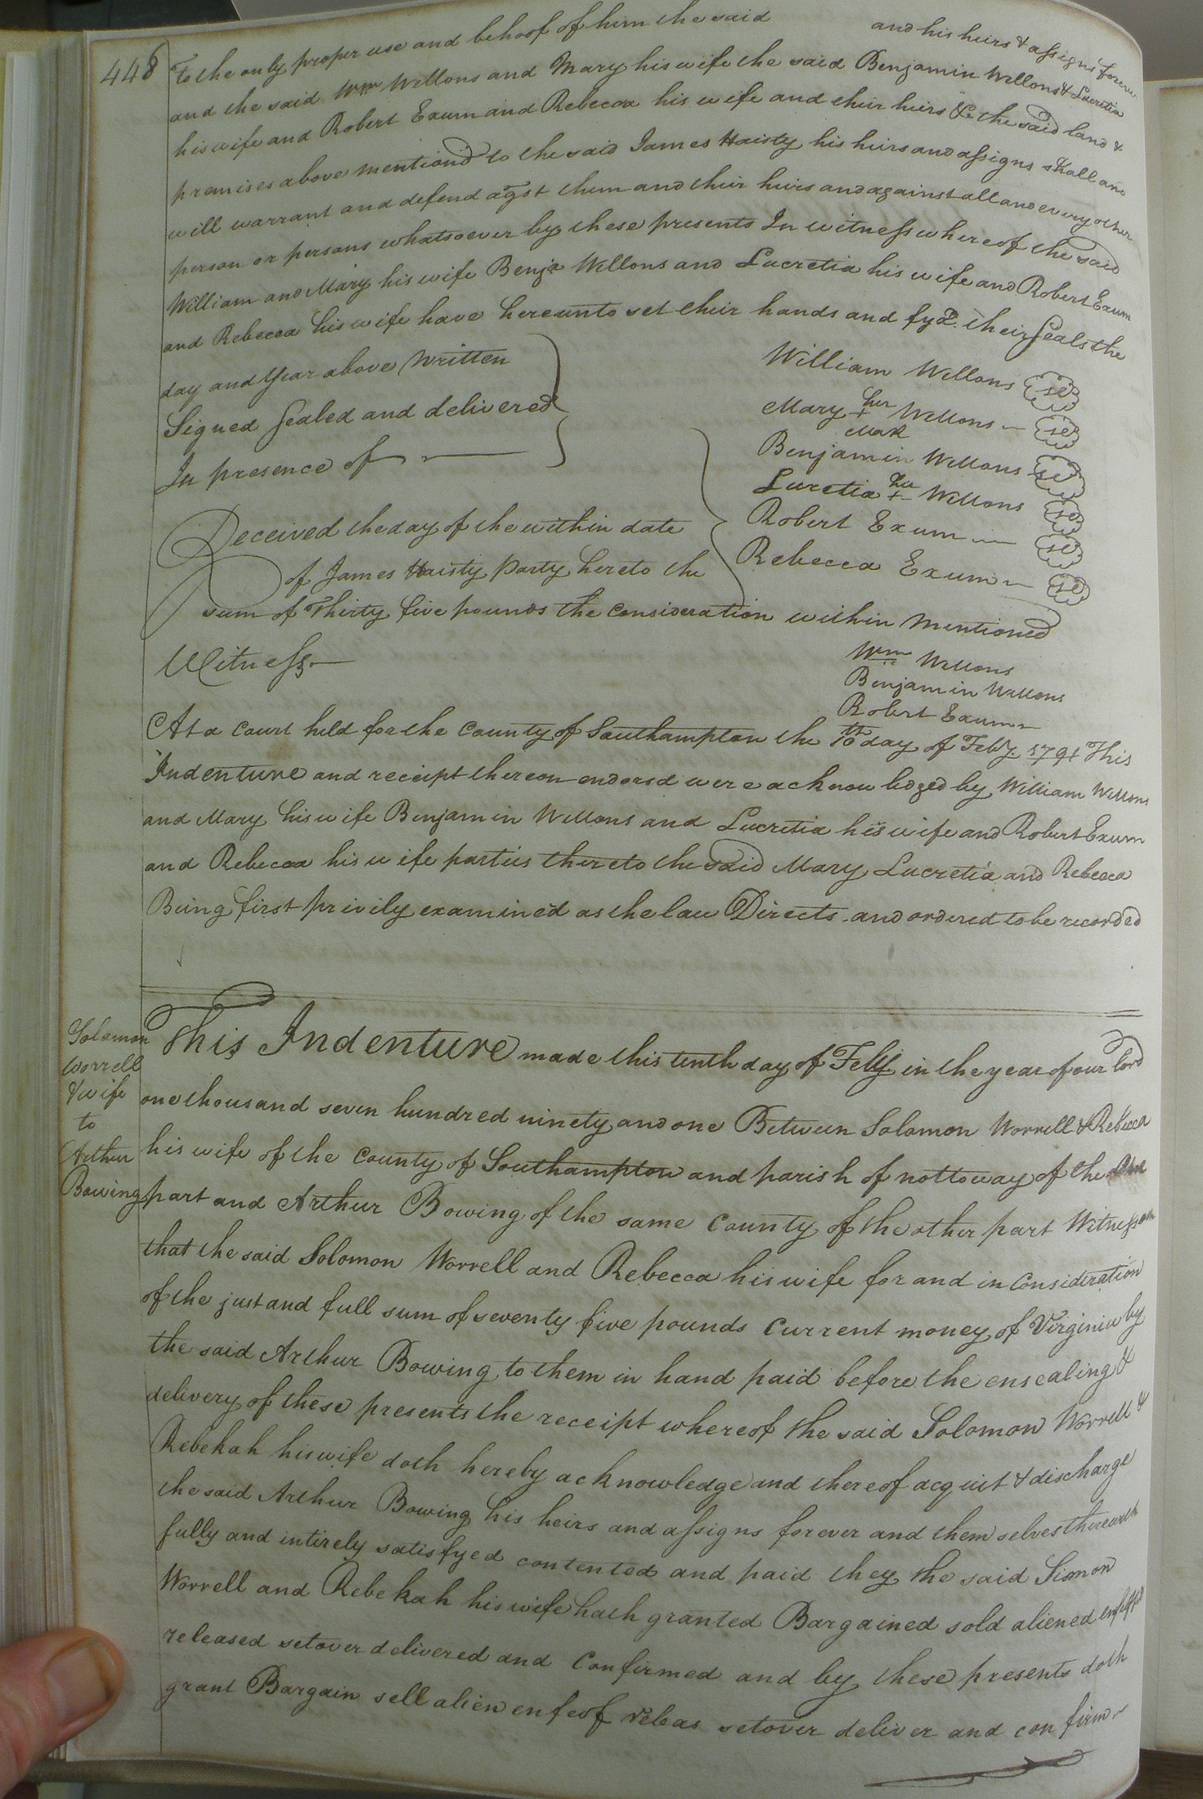 448
To the only proper use and behoof of him the said and his heirs & assigns forever
and the said Wm Wellons and Mary his wife the said Benjamin Wellons & Lucretia
his wife and Robert Exum and Rebecca his wife and their heirs &c the said land &
premises above mentiond to the said James Haisty his heirs and assigns shall and
will warrant and defend agst them and their heirs and against all and every other
person or persons whatsoever by these presents In witness whereof the said
William and Mary his wife Benja Wellons and Lucretia his wife and Robert Exum
and Rebecca his wife have hereunto set their hands and fyd. their Seals the
day and Year above Written
Signed Sealed and delivered
In presence of
William Wellons se
Mary her + Mark Wellons se
Benjamin Wellons se
Lucretia her + Wellons se
Robert Exum se
Rebecca Exum se
Received the day of the within date
of James Haisty party hereto the
sum of Thirty five pounds the consideration within Mentioned
Witness
Wm Wellons
Benjamin Wellons
Robert Exum
At a Court held for the County of Southampton the 10th day of Feby. 1791 This
Indenture and receipt thereon endorsd were acknowledged by William Wellons
and Mary his wife Benjamin Wellons and Lucretia his wife and Robert Exum
and Rebecca his wife parties thereto the said Mary Lucretia and Rebecca
Being first privily examined as the law Directs and ordered to be recorded
Solomon
Worrell
& wife
to
Arthur
Bowing
This Indenture made this tenth day of Feby in the year of our lord
one thousand seven hundred ninety and one Between Solomon Worrell & Rebecca
his wife of the County of Southampton and parish of nottoway of the one
part and Arthur Bowing of the same County of the other part Witnesseth
that the said Solomon Worrell and Rebecca his wife for and in Consideration
of the just and full sum of seventy five pounds Current money of Virginia by
the said Arthur Bowing to them in hand paid before the ensealing &
delivery of these presents the receipt whereof the said Solomon Worrell &
Rebekah his wife doth hereby acknowledge and thereof acquit & discharge
the said Arthur Bowing his heirs and assigns forever and them selves therewith
fully and intirely satisfyed contented and paid they the said Simon
Worrell and Rebekah his wife hath granted Bargained sold aliened enfeoffed
released setover delivered and Confirmed and by these presents doth
grant Bargain sell alien enfeof releas setover deliver and confirm